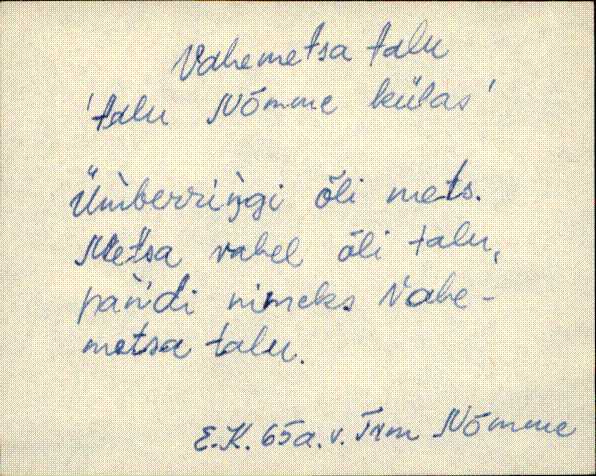 Vahemetsa talu
'talu Nõmme külas'
Üm̀berriŋgi õli mets.
Metsa vahel õli talu,
pàn'di nimeks Vahe-
metsa talu.
E.K. 65a. v. Trm Nõmme